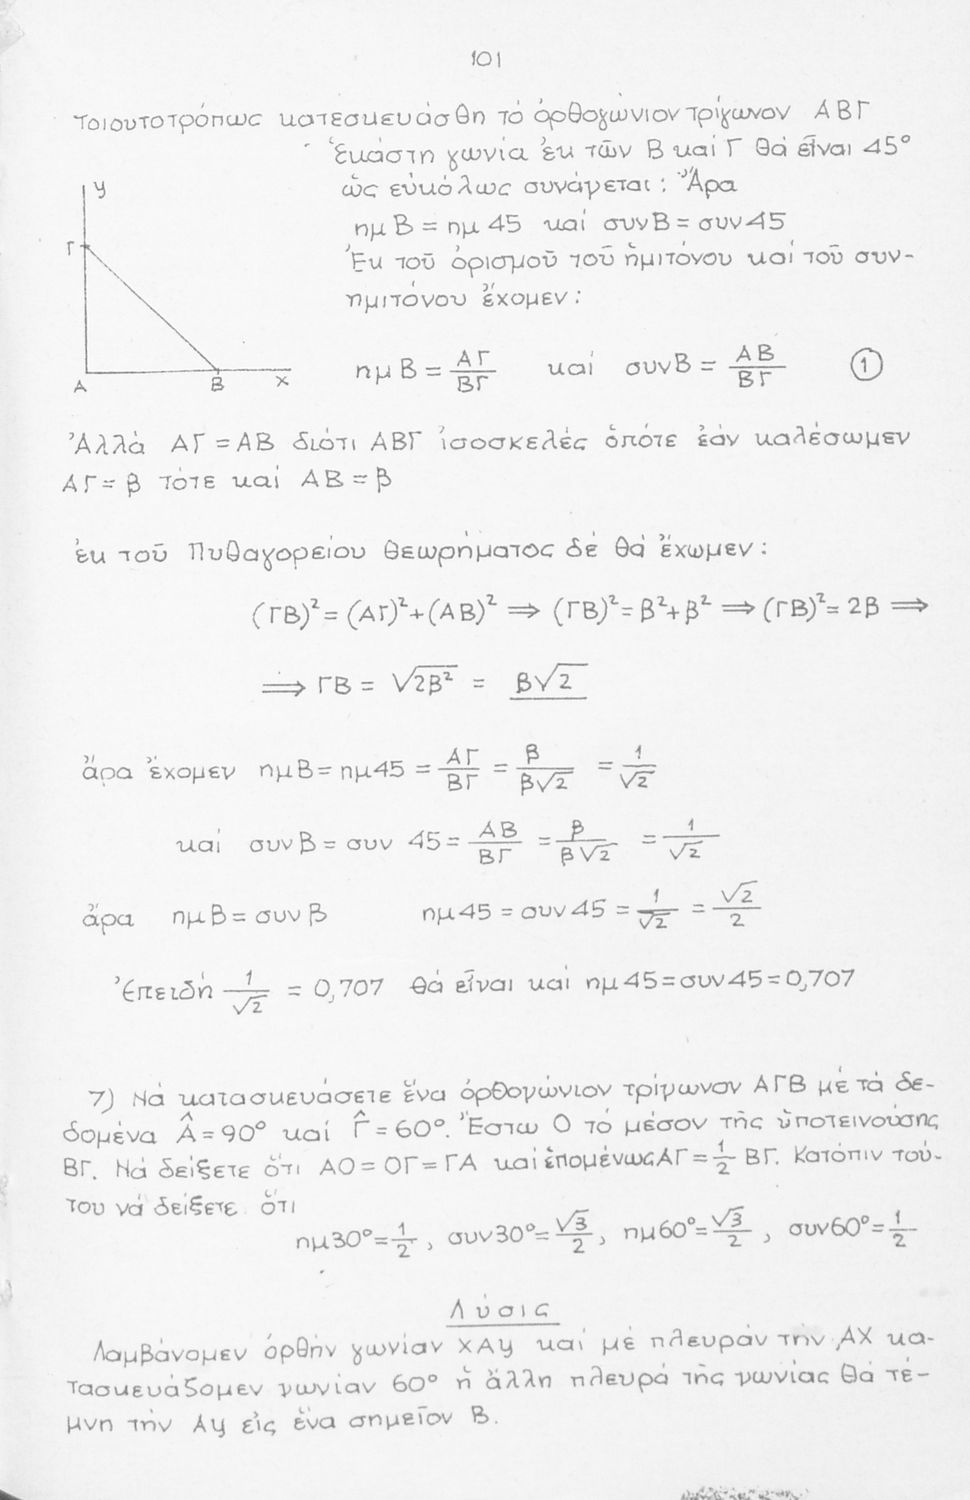 101
τοιουτοτρόπως κατεσκευάσθη τό ὀρθογώνιον τρίγωνον ΑΒΓ
Ἑκάστη γωνία ἐκ τῶν Β καί Γ θά εἶναι 45°
ὡς εὐκόλως συνάγεται: Ἄρα
ημ Β = ημ 45 καί συν Β = συν 45
Ἐκ τοῦ ὁρισμοῦ τοῦ ἡμιτόνου καί τοῦ συν-
ημιτόνου ἔχομεν:
y
Γ
Α Β x
ημ Β = ΑΓ/ΒΓ καί συν Β = ΑΒ/ΒΓ ①
Ἀλλά ΑΓ = ΑΒ διότι ΑΒΓ ἰσοσκελές ὁπότε ἐάν καλέσωμεν
ΑΓ = β τότε καί ΑΒ = β
ἐκ τοῦ Πυθαγορείου Θεωρήματος δέ θά ἔχωμεν:
(ΓΒ)² = (ΑΓ)² + (ΑΒ)² ⇒ (ΓΒ)² = β² + β² ⇒ (ΓΒ)² = 2β ⇒
⇒ ΓΒ = √2β² = β√2
ἄρα ἔχομεν ημ Β = ημ 45 = ΑΓ/ΒΓ = β/β√2 = 1/√2
καί συν β = συν 45 = ΑΒ/ΒΓ = β/β√2 = 1/√2
ἄρα ημ Β = συν β ημ 45 = συν 45 = 1/√2 = √2/2
Ἐπειδή 1/√2 = 0,707 θά εἶναι καί ημ 45 = συν 45 = 0,707
7) Νά κατασκευάσετε ἕνα ὀρθογώνιον τρίγωνον ΑΓΒ μέ τά δε-
δομένα Â = 90° καί Γ̂ = 60°. Ἔστω Ο τό μέσον τῆς ὑποτεινούσης
ΒΓ. Νά δείξετε ὅτι ΑΟ = ΟΓ = ΓΑ καί ἑπομένως ΑΓ = 1/2 ΒΓ. Κατόπιν τού-
του νά δείξετε ὅτι
ημ 30° = 1/2, συν 30° = √3/2, ημ 60° = √3/2, συν 60° = 1/2
Λύσις
Λαμβάνομεν ὀρθήν γωνίαν ΧΑy καί μέ πλευράν τήν ΑΧ κα-
τασκευάζομεν γωνίαν 60° ἡ ἄλλη πλευρά τῆς γωνίας θά τέ-
μνη τήν Αy εἰς ἕνα σημεῖον Β.